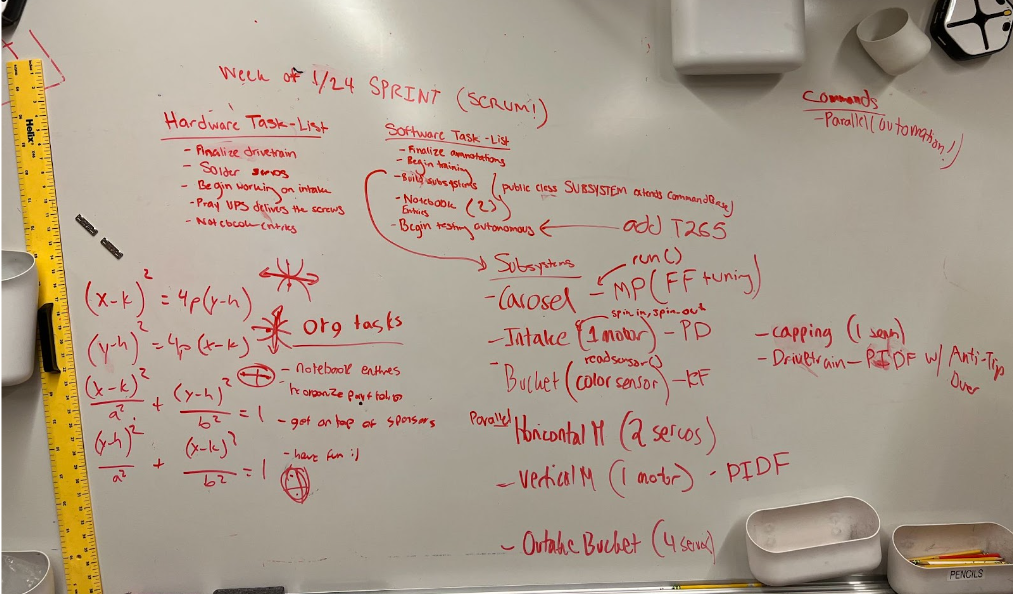 Week of 1/24 SPRINT (SCRUM!)
Hardware Task-List
- Finalize drivetrain
- Solder servos
- Begin working on intake
- Pray UPS delivers the screws
- Notebook entries
Software Task-List
- Finalize annotations
- Begin training
- Build subsystems (public class SUBSYSTEM extends CommandBase)
- Notebook (2)
Entries
- Begin testing autonomous
add T265
Commands
- Parallel (automation!)
(x-k)² = 4p(y-h)
(y-h)² = 4p(x-k)
(x-k)²/a² + (y-h)²/b² = 1
(y-h)²/a² + (x-k)²/b² = 1
Org tasks
- notebook entries
- get on top of sponsors
- have fun :)
Subsystems
run()
- Carosel - MP (FF tuning)
spin_in, spin_out
- Intake (1 motor) - PD
readsensor()
- Bucket (color sensor) - KF
Parallel
Horicontal M (2 sercos)
- Vertical M (1 motor) - PIDF
- Outake Bucket (4 servos)
- capping (1 serv)
- Drivetrain - PIDF w/ Anti-Trip
Over
Helix
PENCILS